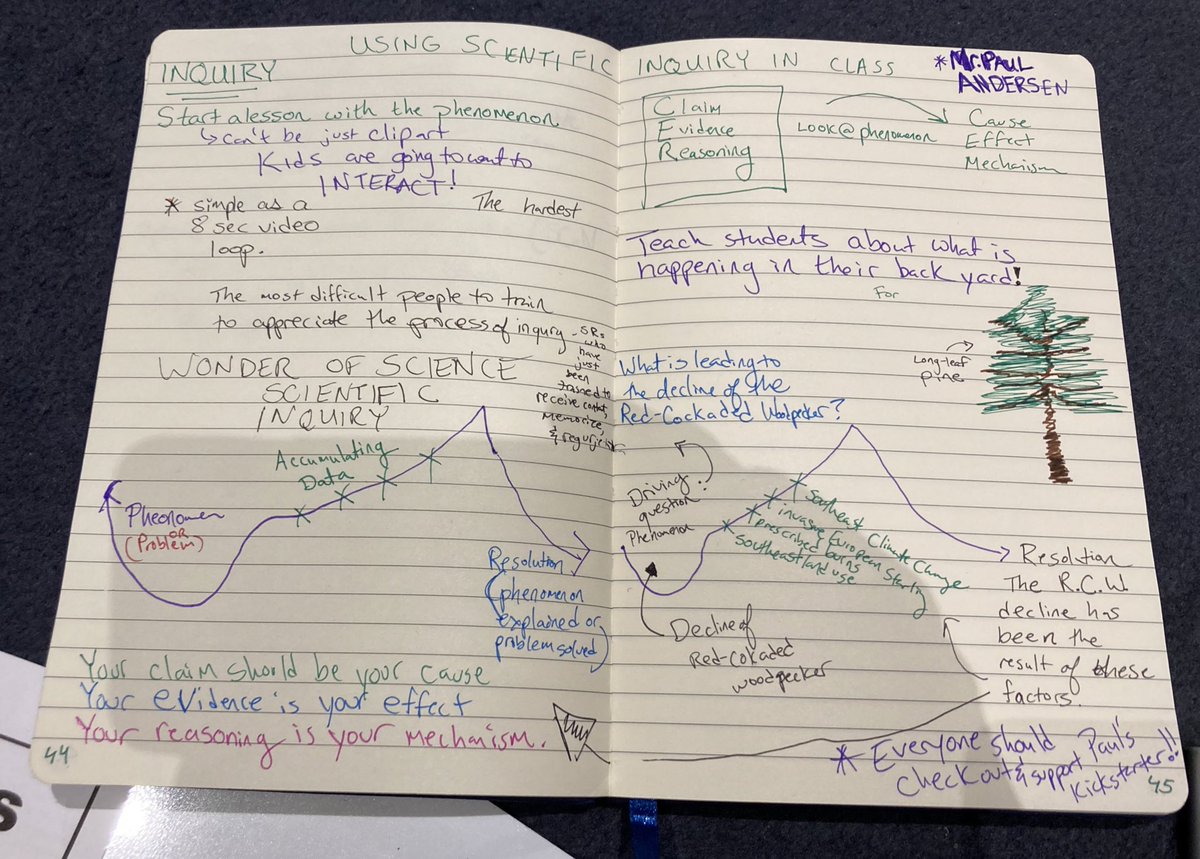 USING SCIENTIFIC INQUIRY IN CLASS
*Mr. PAUL
ANDERSEN
INQUIRY
Start a lesson with the phenomenon
↳ can't be just clipart
Kids are going to want to
INTERACT!
* simple as a
8 sec video
loop.
The hardest
The most difficult people to train
to appreciate the process of inqury
- SRs
who
have
just
been
trained to
receive content,
memorize,
&
WONDER OF SCIENCE
SCIENTIFIC
INQUIRY
Accumulating
Data
Pheonomen
OR
(Problem)
Resolution
(phenomenon
explained or
problem solved)
Your claim should be your cause
Your evidence is your effect
Your reasoning is your mechaism.
44
Claim
Evidence
Reasoning
Look@phenomenon
Cause
Effect
Mechaism
Teach students about what is
happening in their back yard!
For
Long-leaf
pine
What is leading to
the decline of the
Red-Cockaded Woodpecker?
Driving
question
Phenomenon
Southeast Climate Change
invasive European Starling
prescribed burns
Southeast land use
Decline of
Red-Cokaded
woodpecker
Resolution
The R.C.W.
decline has
been the
result of these
factors.
* Everyone should
checkout & support Paul's
Kickstarter!!
45
s